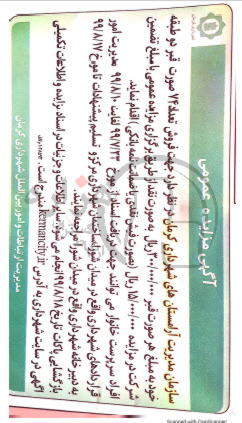 آگهی مزایده عمومی
سازمان مدیریت آرامستان های شهرداری کرمان در نظر دارد جهت فروش تعداد ۷۴ صورت قبر دو طبقه
خود به مبلغ هر صورت قبر ۳۰۰/۰۰۰/۰۰۰ ریال به صورت نقد از طریق برگزاری مزایده عمومی با مبلغ تضمین
شرکت در مزایده ۱۵/۰۰۰/۰۰۰ ریال (بصورت فیش نقدی یا ضمانت نامه بانکی) اقدام نماید.
افراد سرپرست خانوار می توانند جهت دریافت اسناد از مورخ ۹۹/۷/۲۳ لغایت ۹۹/۸/۱۰ مدیریت امور
قراردادهای شهرداری واقع در میدان شورا، ساختمان شهرداری مرکز و تسلیم پیشنهادات تا مورخ ۹۹/۸/۱۷
به دبیرخانه شهرداری واقع در میدان شورا مراجعه نمایند.
بازگشایی پاکات تاریخ ۹۹/۸/۱۸ انجام می شود. سایر اطلاعات و جزئیات در اسناد مزایده و اطلاعات تکمیلی
آگهی در سایت شهرداری به آدرس kermancity.ir مندرج است.
مدیریت ارتباطات و امور بین الملل شهرداری کرمان